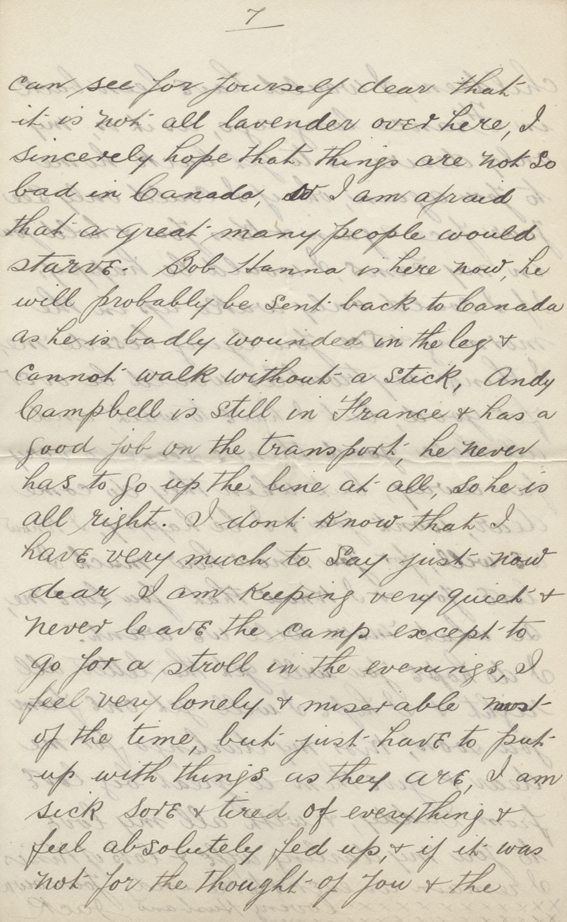 7
can see for yourself dear that
it is not all lavender over here, I
sincerely hope that things are not so
bad in Canada, I am afraid
that a great many people would
starve. Bob Hanna is here now, he
will probably be sent back to Canada
as he is badly wounded in the leg &
cannot walk without a stick, Andy
Campbell is still in France & has a
good job on the transport, he never
has to go up the line at all, so he is
all right. I dont know that I
have very much to say just now
dear, I am keeping very quiet &
never leave the camp except to
go for a stroll in the evenings, I
feel very lonely & miserable most
of the time, but just have to put
up with things as they are, I am
sick sore & tired of everything &
feel absolutely fed up, & if it was
not for the thought of you & the